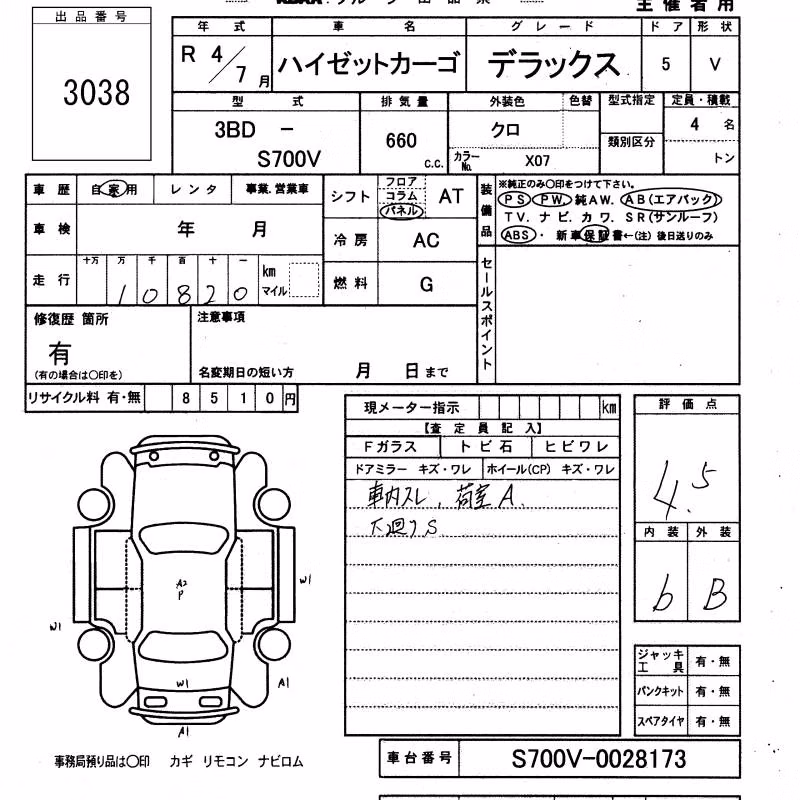 主催者用
出品番号
3038
年式 車名 グレード ドア 形状
R 4/7月 ハイゼットカーゴ デラックス 5 V
型式 排気量 外装色 色替 型式指定 定員・積載
3BD - S700V 660 c.c. クロ 類別区分 4 名
カラーNo. X07 トン
車歴 自家用 レンタ 事業.営業車 シフト フロア コラム パネル AT 装備品 ※純正のみ○印をつけて下さい。
PS PW. 純AW. AB(エアバック)
TV. ナビ. カワ. SR(サンルーフ)
車検 年 月 冷房 AC ABS・ 新車保証書←(注) 後日送りのみ
走行 十万 万 千 百 十 一 km マイル 燃料 G セールスポイント
10820
修復歴 箇所 注意事項
有
(有の場合は○印を) 名変期日の短い方 月 日まで
リサイクル料 有・無 8510円
現メーター指示 km 評価点
【査定員記入】
Fガラス トビ石 ヒビワレ
ドアミラー キズ・ワレ ホイール(CP) キズ・ワレ
車内スレ、荷室A. 4.5
下廻りS
内装 外装
b B
A2
P
W1
W1
W1
A1
A1
ジャッキ工具 有・無
パンクキット 有・無
スペアタイヤ 有・無
事務局預り品は○印 カギ リモコン ナビロム
車台番号 S700V-0028173